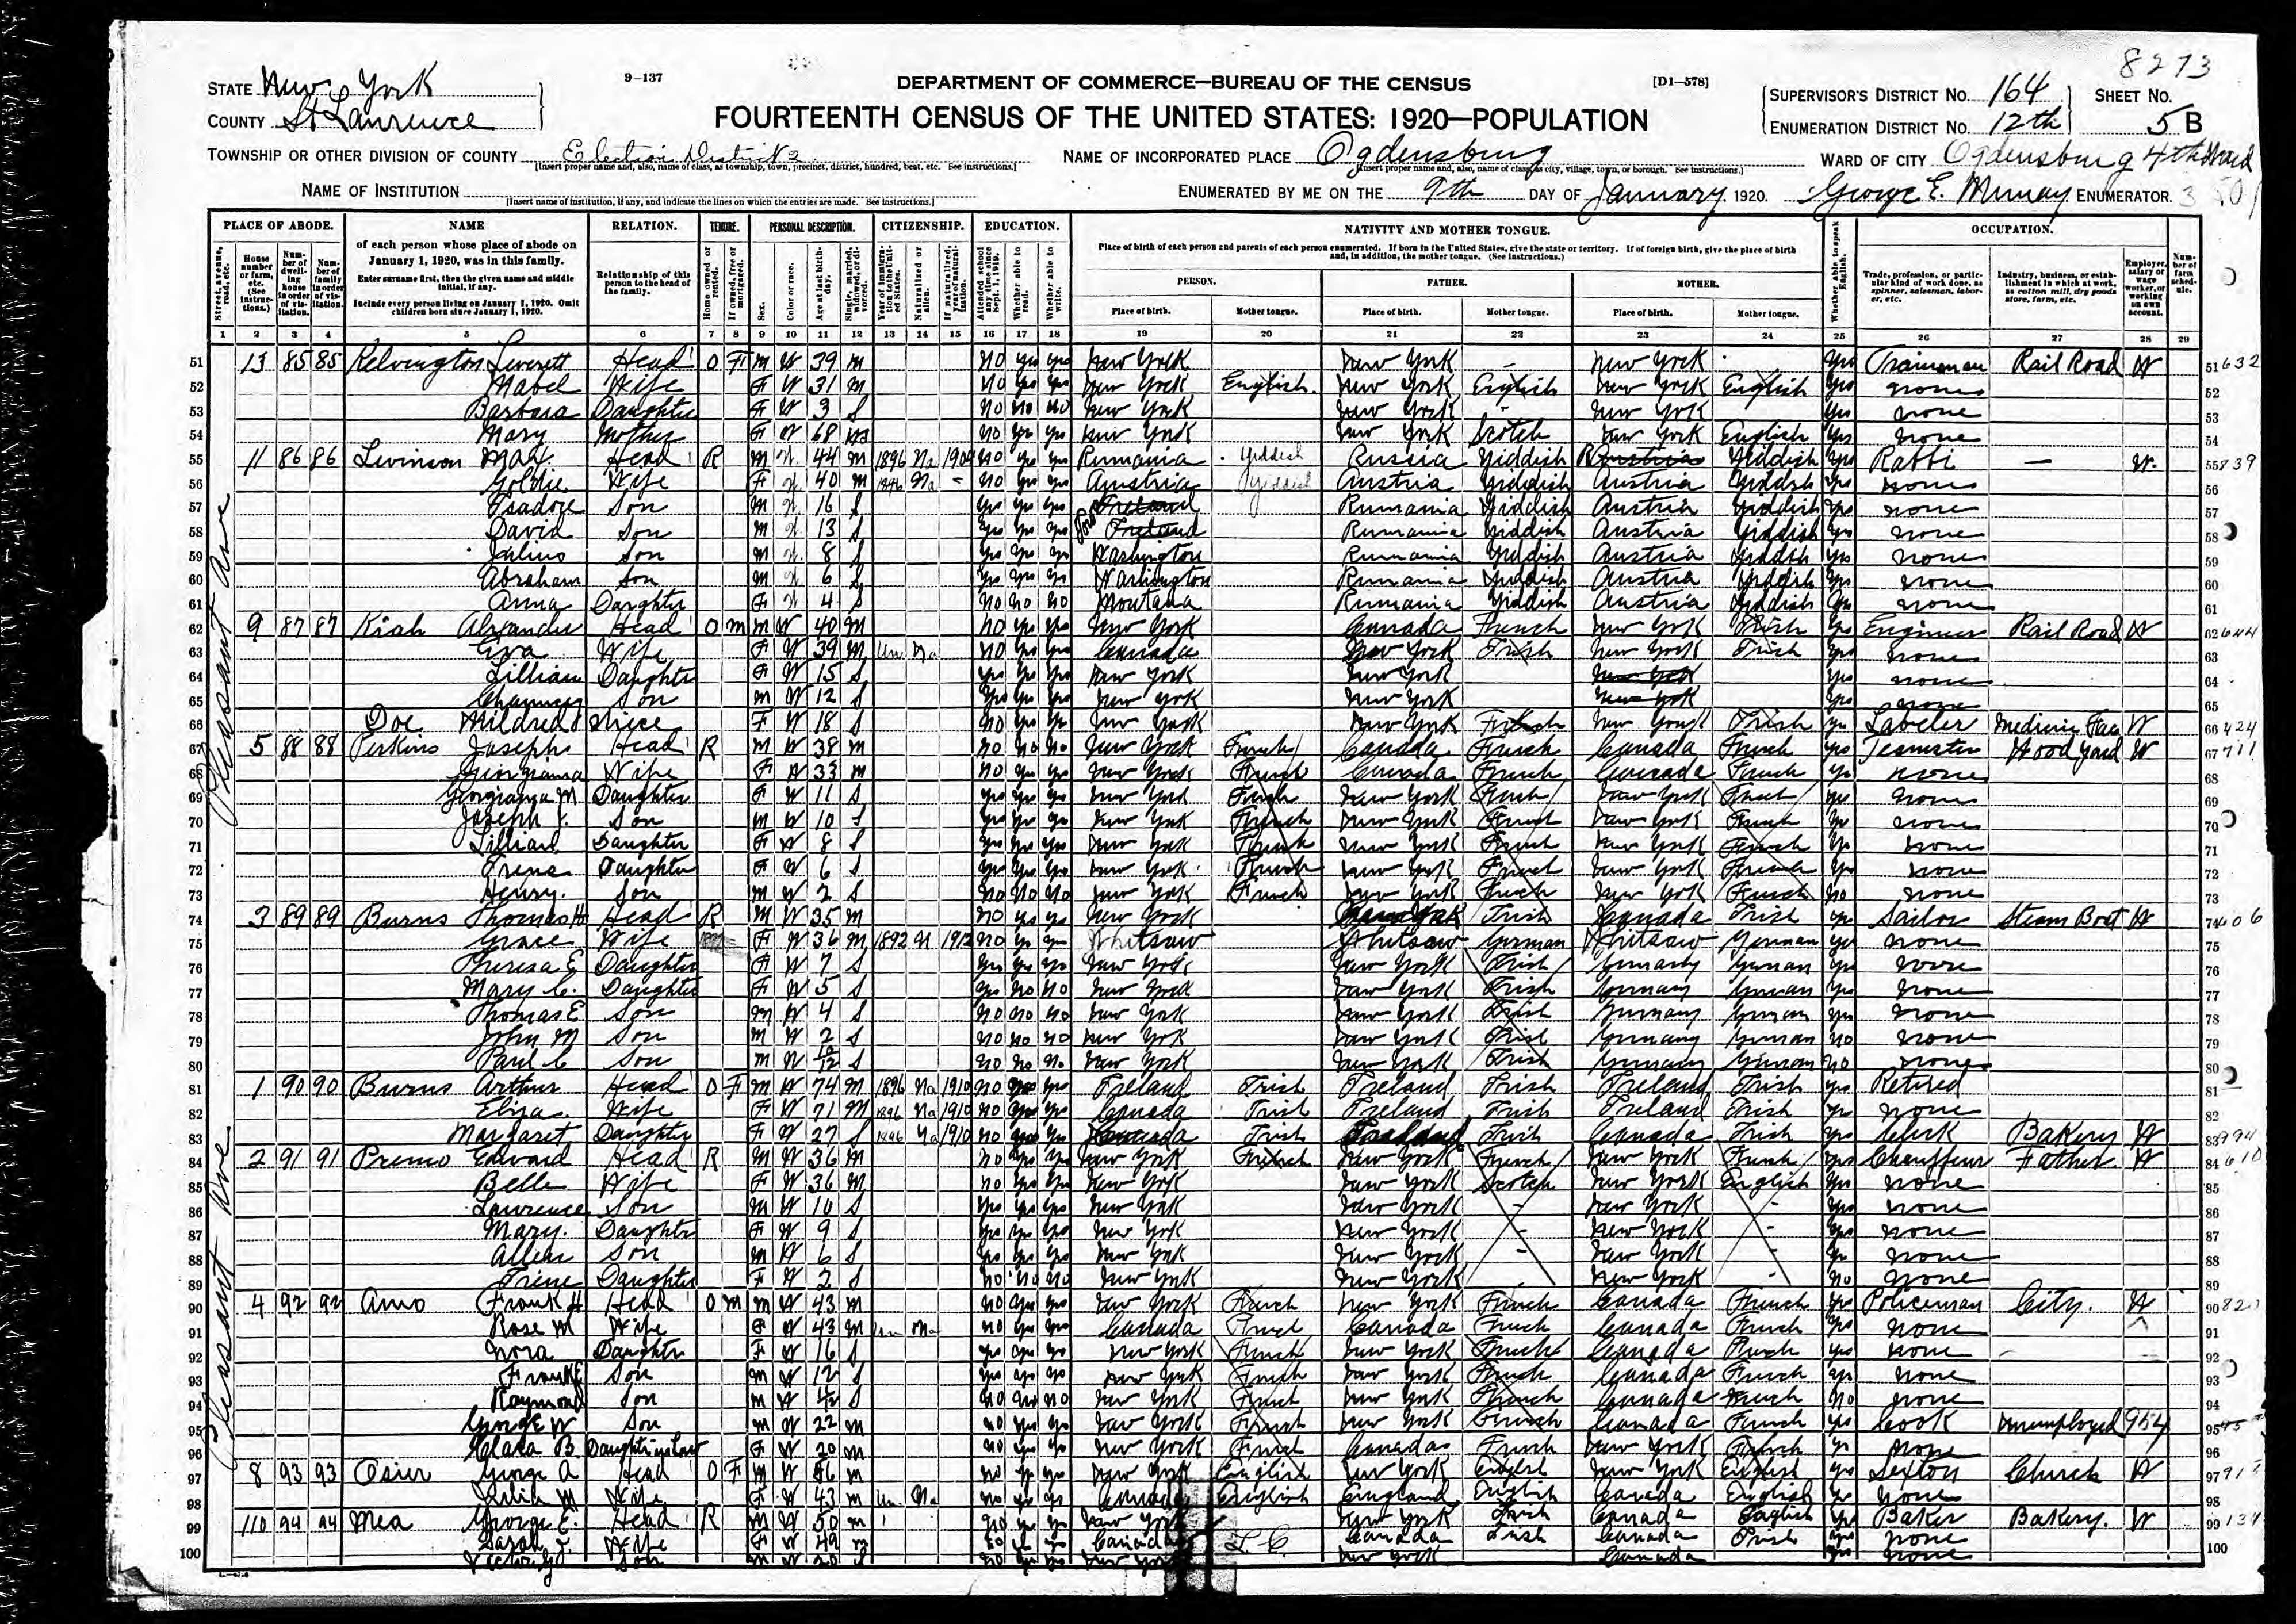 8273
STATE New York
9-137
DEPARTMENT OF COMMERCE—BUREAU OF THE CENSUS
[D1-578]
COUNTY St Lawrence
FOURTEENTH CENSUS OF THE UNITED STATES: 1920—POPULATION
SUPERVISOR'S DISTRICT No. 164
SHEET No.
ENUMERATION DISTRICT No. 12th
5 B
TOWNSHIP OR OTHER DIVISION OF COUNTY Election District 2
[Insert proper name and, also, name of class, as township, town, precinct, district, hundred, beat, etc. See instructions.]
NAME OF INCORPORATED PLACE Ogdensburg
[Insert proper name and, also, name of class, as city, village, town, or borough. See instructions.]
WARD OF CITY Ogdensburg 4th Ward
NAME OF INSTITUTION
[Insert name of institution, if any, and indicate the lines on which the entries are made. See instructions.]
ENUMERATED BY ME ON THE 9th DAY OF January, 1920. George E. Murray ENUMERATOR.
PLACE OF ABODE. NAME RELATION. TENURE. PERSONAL DESCRIPTION. CITIZENSHIP. EDUCATION. NATIVITY AND MOTHER TONGUE. OCCUPATION.
of each person whose place of abode on January 1, 1920, was in this family.
Enter surname first, then the given name and middle initial, if any.
Include every person living on January 1, 1920. Omit children born since January 1, 1920.
Relationship of this person to the head of the family.
Place of birth of each person and parents of each person enumerated. If born in the United States, give the state or territory. If of foreign birth, give the place of birth and, in addition, the mother tongue. (See instructions.)
PERSON. FATHER. MOTHER.
Place of birth. Mother tongue. Place of birth. Mother tongue. Place of birth. Mother tongue.
1 2 3 4 5 6 7 8 9 10 11 12 13 14 15 16 17 18 19 20 21 22 23 24 25 26 27 28 29
Pleasant Ave
51 13 85 85 Kelvington Leverett Head O F M W 39 M No yes yes New York New York New York yes Trainman Rail Road W 51 632
52 Mabel Wife F W 31 M No yes yes New York English New York English New York English yes none 52
53 Barbara Daughter F W 3 S No No No New York New York New York yes none 53
54 Mary Mother F W 68 Wd No yes yes New York New York Scotch New York English yes none 54
55 11 86 86 Levinson Max Head R M W 44 M 1896 Na No yes yes Rumania Yiddish Russia Yiddish Yiddish yes Rabbi — W 55 839
56 Goldie Wife F W 40 M Na - No yes yes Austria Yiddish Austria Yiddish Austria Yiddish yes none 56
57 Isadore Son M W 16 S yes yes yes Ireland Rumania Yiddish Austria Yiddish yes none 57
58 David Son M W 13 S yes yes yes Ireland Rumania Yiddish Austria Yiddish yes none 58
59 Julius Son M W 8 S yes yes yes Washington Rumania Yiddish Austria Yiddish yes none 59
60 Abraham Son M W 6 S yes yes yes Washington Rumania Yiddish Austria Yiddish yes none 60
61 Anna Daughter F W 4 S No No No Montana Rumania Yiddish Austria Yiddish yes none 61
62 9 87 87 Kiah Alexander Head O M M W 40 M No yes yes New York Canada French New York Irish yes Engineer Rail Road W 62 644
63 Eva Wife F W 39 M Un Na No yes yes Canada New York Irish New York Irish yes none 63
64 Lillian Daughter F W 15 S yes yes yes New York New York New York yes none 64
65 Chauncey Son M W 12 S yes yes yes New York New York New York yes none 65
66 Doe Mildred Niece F W 18 S No yes yes New York New York French New York Irish yes Labeler Medicine Fac W 66 424
67 5 88 88 Perkins Joseph Head R M W 38 M No No No New York French Canada French Canada French yes Teamster Wood Yard W 67 711
68 Georgianna Wife F W 33 M No yes yes New York French Canada French Canada French yes none 68
69 Georgianna M Daughter F W 11 S yes yes yes New York French New York French New York French yes none 69
70 Joseph J. Son M W 10 S yes yes yes New York French New York French New York French yes none 70
71 Lillian Daughter F W 8 S yes yes yes New York French New York French New York French yes none 71
72 Irene Daughter F W 6 S yes yes yes New York French New York French New York French yes none 72
73 Henry. Son M W 2 S No No No New York French New York French New York French No none 73
74 3 89 89 Burns Thomas H Head R M W 35 M No yes yes New York New York Irish Canada Irish yes Sailor Steam Boat W 74 606
75 Grace Wife F W 36 M 1892 N 1912 No yes yes Whitsaw Whitsaw German Whitsaw German yes none 75
76 Theresa E Daughter F W 7 S yes yes yes New York New York Irish Germany German yes none 76
77 Mary C. Daughter F W 5 S yes No No New York New York Irish Germany German yes none 77
78 Thomas E Son M W 4 S No No No New York New York Irish Germany German yes none 78
79 John M Son M W 2 S No No No New York New York Irish Germany German No none 79
80 Paul C Son M W 10/12 S No No No New York New York Irish Germany German No none 80
81 1 90 90 Burns Arthur Head O F M W 74 M 1896 Na 1910 No yes yes Ireland Irish Ireland Irish Ireland Irish yes Retired 81
82 Eliza Wife F W 71 M 1896 Na 1910 No yes yes Canada Irish Ireland Irish Ireland Irish yes none 82
83 Margaret Daughter F W 27 S 1896 Na 1910 No yes yes Canada Irish Ireland Irish Canada Irish yes Clerk Bakery W 83
84 2 91 91 Premo Edward Head R M W 36 M No yes yes New York French New York French New York French yes Chauffeur Father W 84 610
85 Belle Wife F W 36 M No yes yes New York New York Scotch New York English yes none 85
86 Lawrence Son M W 10 S yes yes yes New York New York - New York - yes none 86
87 Mary. Daughter F W 9 S yes yes yes New York New York New York - yes none 87
88 Allen Son M W 6 S yes yes yes New York New York - New York - yes none 88
89 Irene Daughter F W 2 S No No No New York New York - New York - No none 89
90 4 92 92 Amo Frank H Head O M M W 43 M No yes yes New York French New York French Canada French yes Policeman City. W 90 820
91 Rose M Wife F W 43 M Un Na No yes yes Canada French Canada French Canada French yes none 91
92 Nora Daughter F W 16 S yes yes yes New York French New York French Canada French yes none 92
93 Frank E Son M W 12 S yes yes yes New York French New York French Canada French yes none 93
94 Raymond Son M W S No No New York French New York French Canada French No none 94
95 George W Son M W 22 M No yes yes New York French New York French Canada French yes Cook Unemployed 954 95
96 Clara B. Daughter in law F W 20 M No yes yes New York French Canada French New York French yes none 96
97 8 93 93 Osier George A Head O F M W 56 M No yes yes New York English New York English New York English yes Sexton Church W 97
98 M Wife F W 43 M Un Na No yes yes Canada English England English Canada English yes none 98
99 110 94 94 Mea George E. Head R M W 50 M No yes yes New York New York Irish Canada English yes Baker Bakery. W 99 134
100 Sarah J. Wife F W 49 M No Canada Canada Irish Canada Irish yes none 100
Son M W 20 S No New York New York Canada yes none